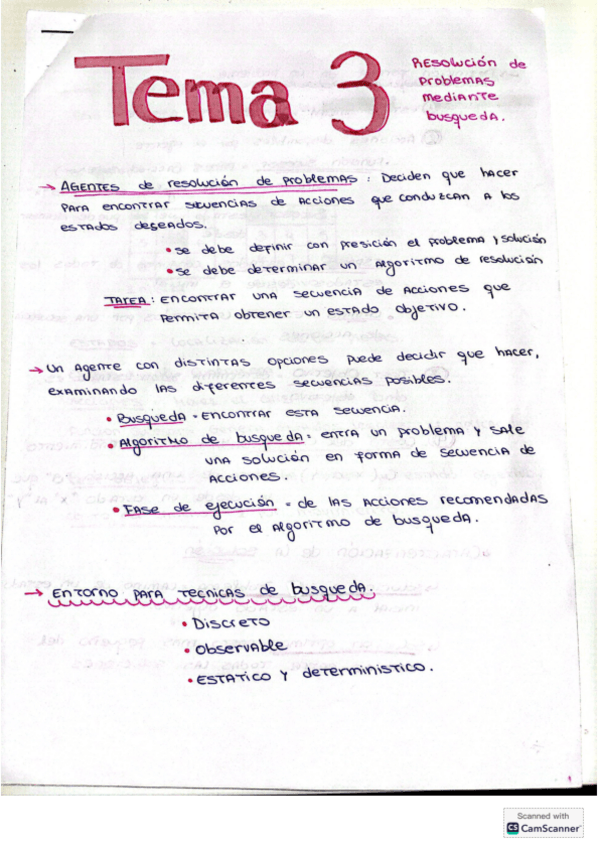 Tema 3
Resolución de
problemas
mediante
busqueda.
→ Agentes de resolución de problemas: Deciden que hacer
para encontrar secuencias de acciones que conduzcan a los
estados deseados.
• se debe definir con presición el problema y solución
• se debe determinar un algoritmo de resolución
Tarea: Encontrar una secuencia de acciones que
permita obtener un estado objetivo.
→ Un agente con distintas opciones puede decidir que hacer,
examinando las diferentes secuencias posibles.
• Busqueda = Encontrar esta secuencia.
• Algoritmo de busqueda: entra un problema y sale
una solución en forma de secuencia de
acciones.
• Fase de ejecución = de las acciones recomendadas
por el algoritmo de busqueda.
→ Entorno para tecnicas de busqueda.
• Discreto
• Observable
• Estatico y deterministico.
1
Scanned with
CS CamScanner